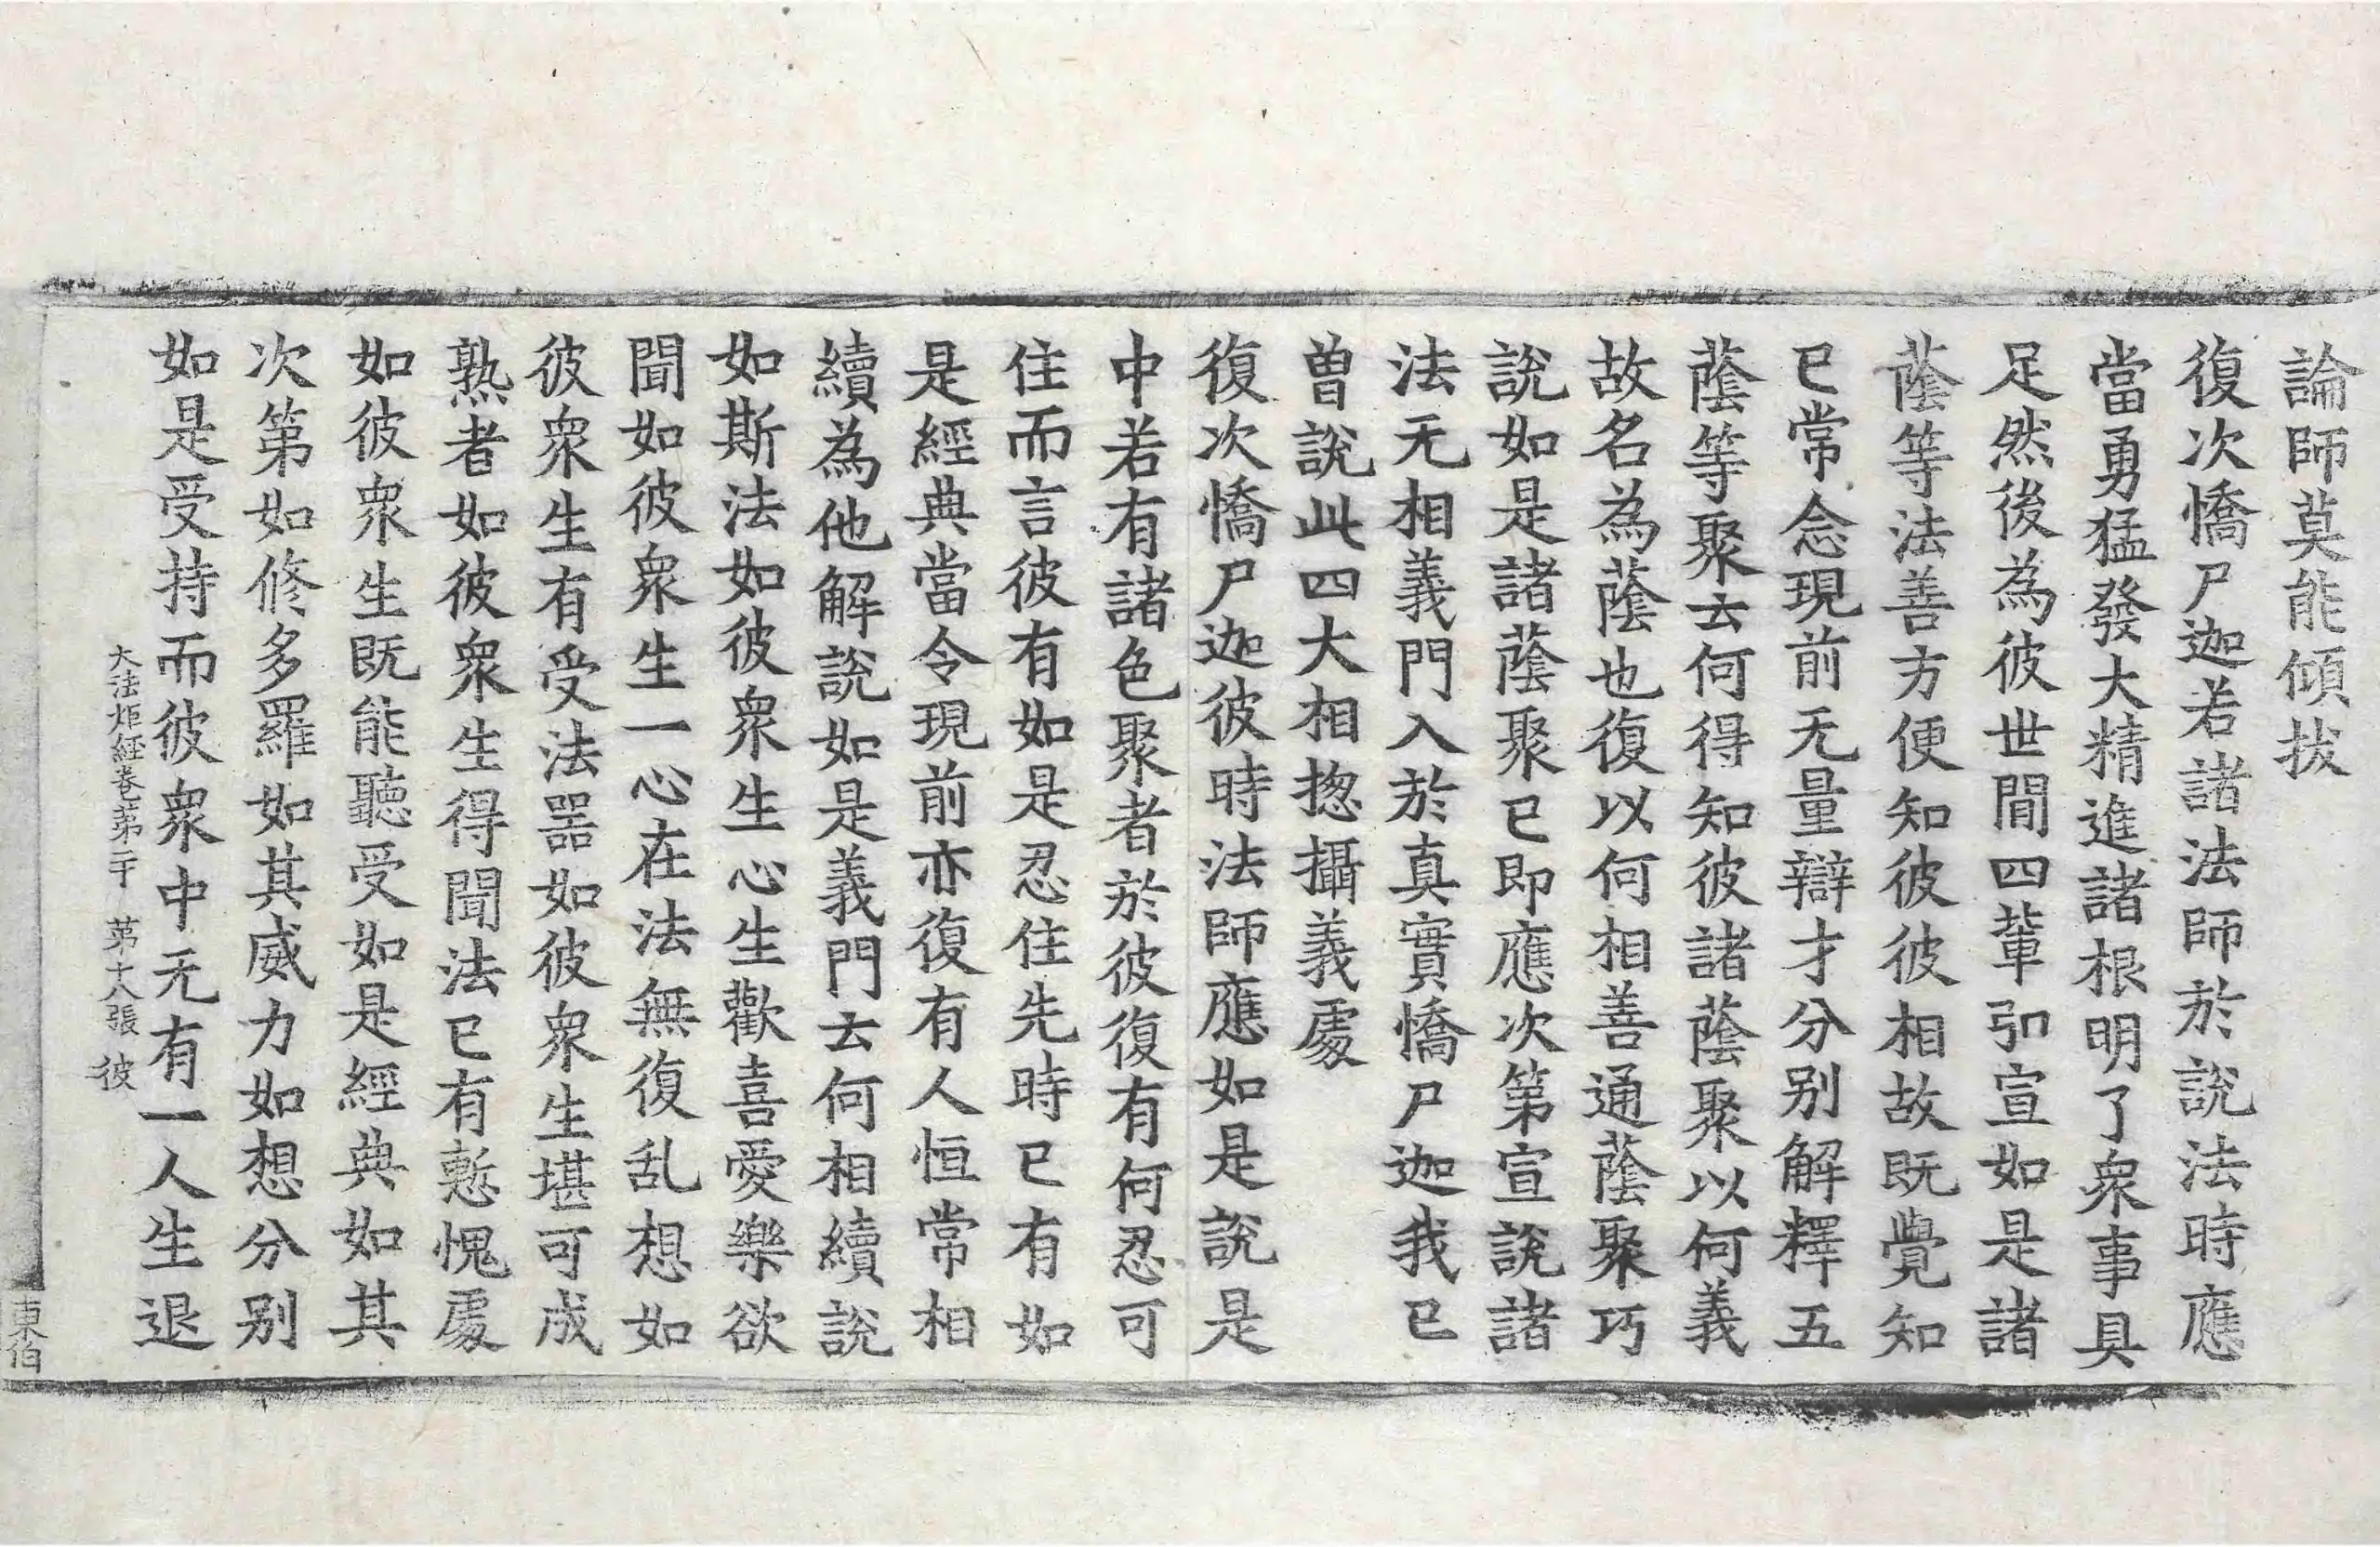 論師莫能傾拔
復次憍尸迦若諸法師於說法時應
當勇猛發大精進諸根明了衆事具
足然後為彼世間四輩引宣如是諸
蔭等法善方便知彼彼相故既覺知
已常念現前无量辯才分别解釋五
蔭等聚云何得知彼諸蔭聚以何義
故名為蔭也復以何相善通蔭聚巧
說如是諸蔭聚已即應次第宣說諸
法无相義門入於真實憍尸迦我已
曽說此四大相揔攝義處
復次憍尸迦彼時法師應如是說是
中若有諸色聚者於彼復有何忍可
住而言彼有如是忍住先時已有如
是經典當令現前亦復有人恒常相
續為他解說如是義門云何相續說
如斯法如彼衆生心生歡喜愛樂欲
聞如彼衆生一心在法無復乱想如
彼衆生有受法器如彼衆生堪可成
熟者如彼衆生得聞法已有慙愧處
如彼衆生既能聽受如是經典如其
次第如修多羅如其威力如想分别
如是受持而彼衆中无有一人生退
大法炬經卷第二十 第十八張 彼
東伯